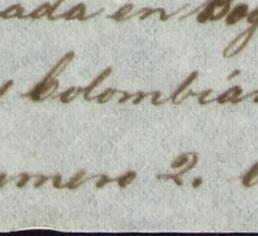 ada en Bog
Colombia
umero 2.